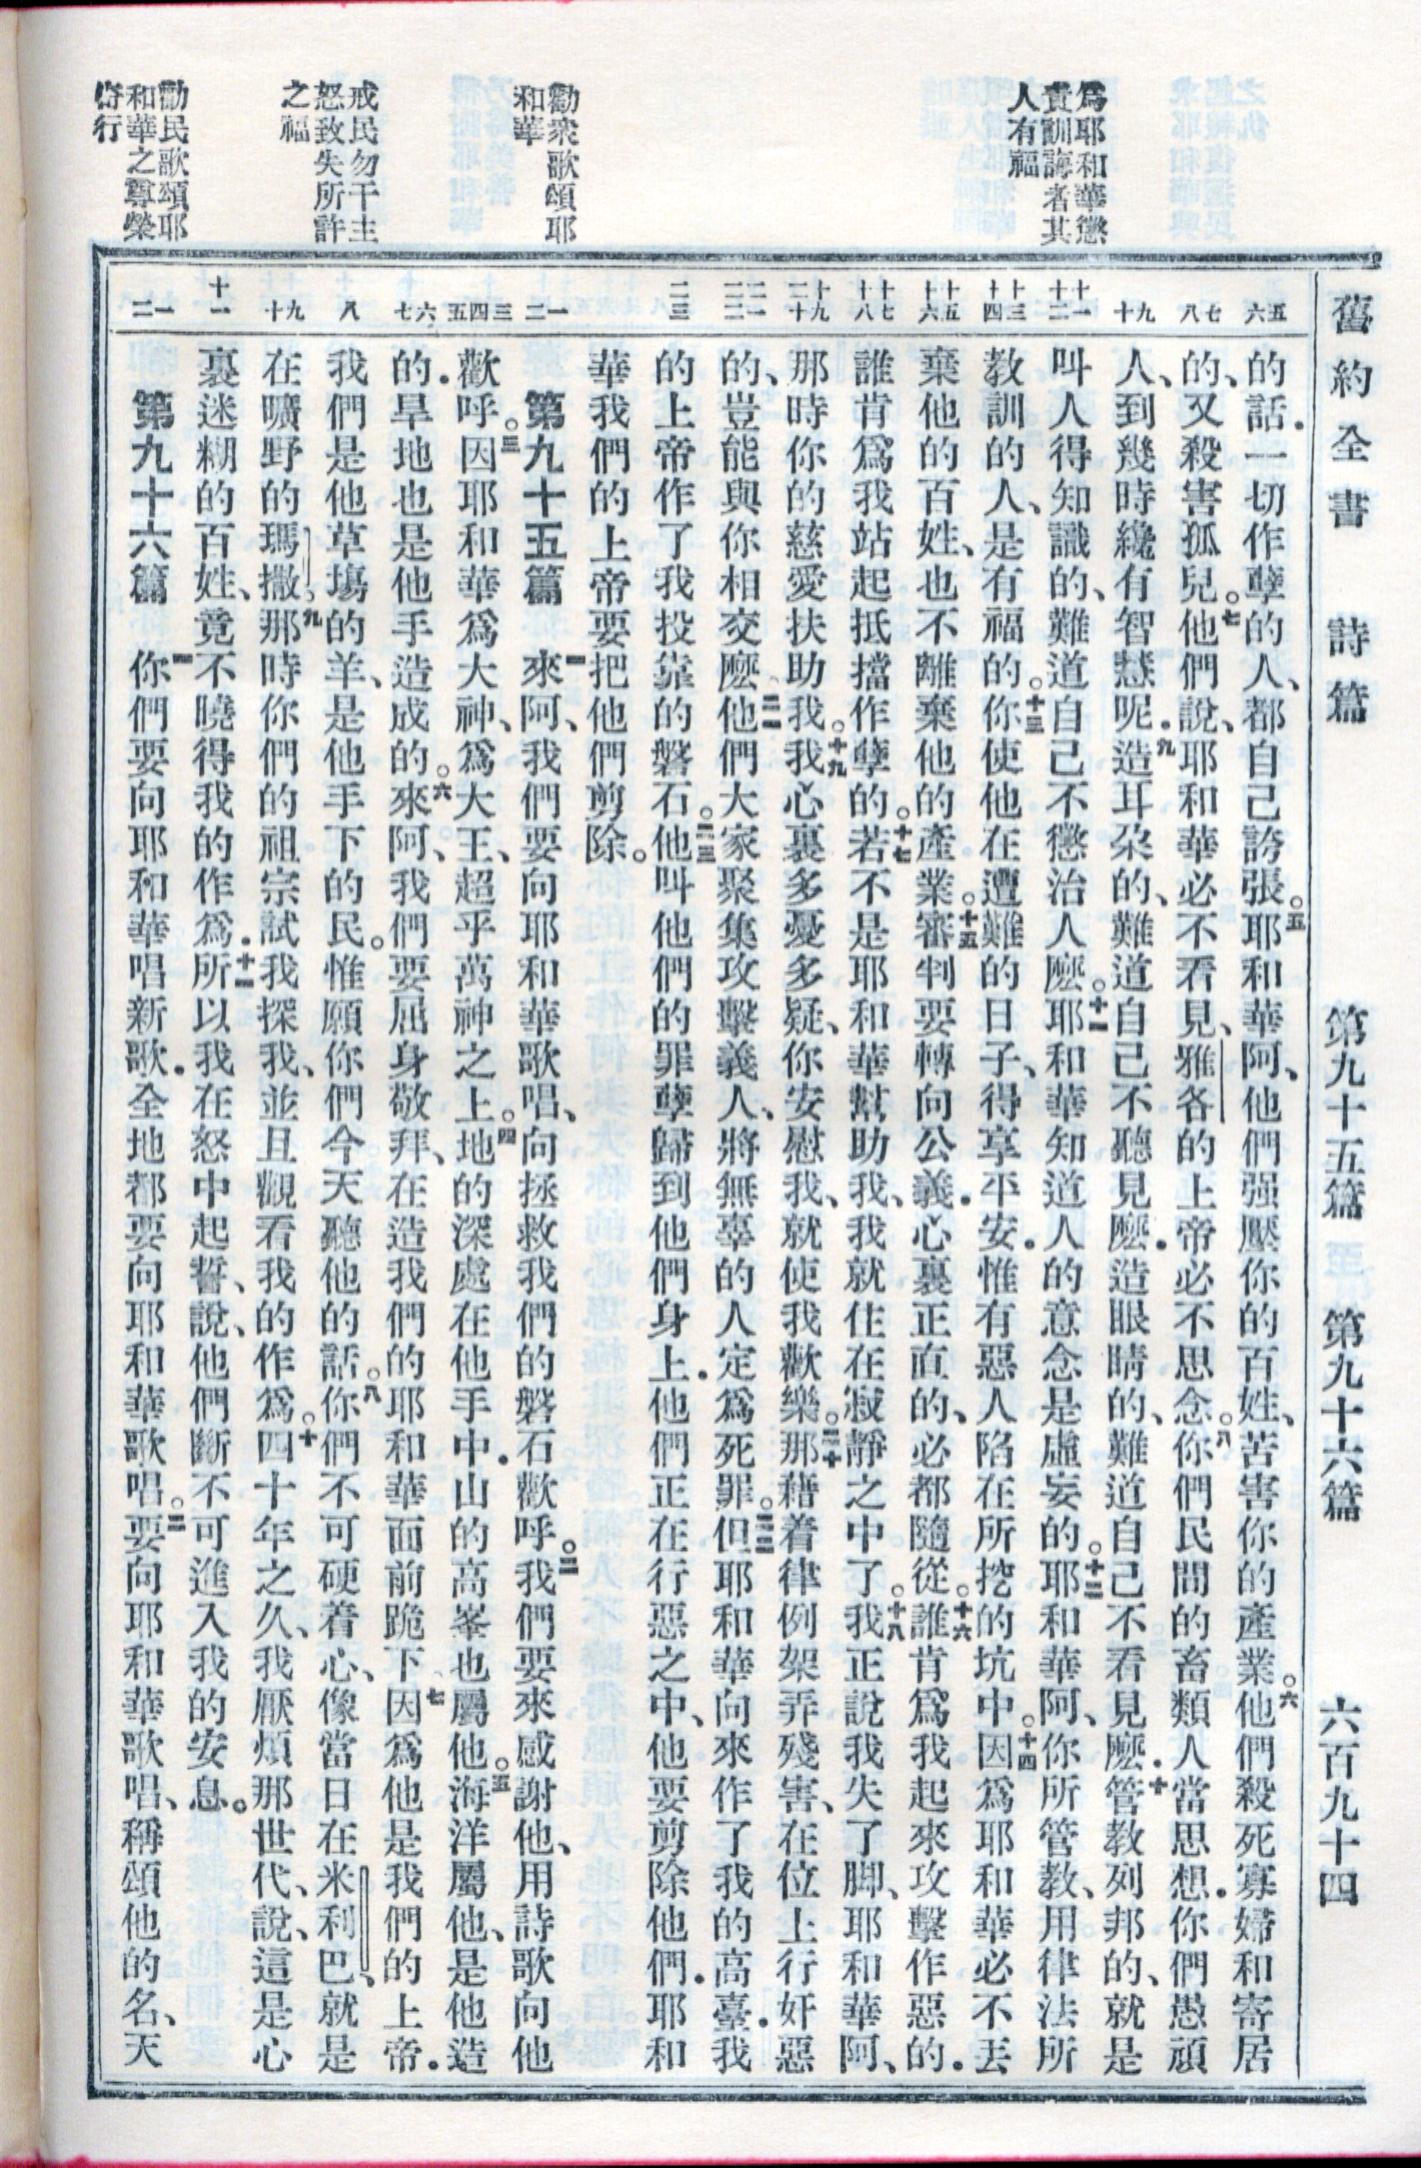 舊約全書　詩篇　第九十五篇　至　第九十六篇　六百九十四
爲耶和華懲
責訓誨者其
人有福
勸衆歌頌耶
和華
戒民勿干主
怒致失所許
之福
勸民歌頌耶
和華之尊榮
啓行
五 六
七 八
九 十
十一 十二
十三 十四
十五 十六
十七 十八
十九 二十
二一 二二
二三
一 二
三 四 五
六 七
八
九 十
十一
一 二
的話．一切作孽的人、都自己誇張。五耶和華阿、他們强壓你的百姓、苦害你的產業。六他們殺死寡婦和寄居
的、又殺害孤兒。七他們說、耶和華必不看見、雅各的上帝必不思念。八你們民間的畜類人當思想．你們愚頑
人、到幾時纔有智慧呢．九造耳朶的、難道自己不聽見麽．造眼睛的、難道自己不看見麽．十管教列邦的、就是
叫人得知識的、難道自己不懲治人麽。十一耶和華知道人的意念是虛妄的。十二耶和華阿、你所管教、用律法所
教訓的人、是有福的。十三你使他在遭難的日子、得享平安．惟有惡人陷在所挖的坑中。十四因爲耶和華必不丟
棄他的百姓、也不離棄他的產業。十五審判要轉向公義．心裏正直的、必都隨從。十六誰肯爲我起來攻擊作惡的．
誰肯爲我站起抵擋作孽的。十七若不是耶和華幫助我、我就住在寂靜之中了。十八我正說我失了脚、耶和華阿、
那時你的慈愛扶助我。十九我心裏多憂多疑、你安慰我、就使我歡樂。二十那藉着律例架弄殘害、在位上行奸惡
的、豈能與你相交麽。二一他們大家聚集攻擊義人、將無辜的人定爲死罪。二二但耶和華向來作了我的高臺．我
的上帝作了我投靠的磐石。二三他叫他們的罪孽歸到他們身上．他們正在行惡之中、他要剪除他們．耶和
華我們的上帝要把他們剪除。
第九十五篇　一來阿、我們要向耶和華歌唱、向拯救我們的磐石歡呼。二我們要來感謝他、用詩歌向他
歡呼。三因耶和華爲大神、爲大王、超乎萬神之上。四地的深處在他手中．山的高峯也屬他。五海洋屬他、是他造
的．旱地也是他手造成的。六來阿、我們要屈身敬拜、在造我們的耶和華面前跪下。七因爲他是我們的上帝．
我們是他草塲的羊、是他手下的民。惟願你們今天聽他的話。八你們不可硬着心、像當日在米利巴、就是
在曠野的瑪撒。九那時你們的祖宗試我探我、並且觀看我的作爲。十四十年之久、我厭煩那世代、說、這是心
裏迷糊的百姓、竟不曉得我的作爲．十一所以我在怒中起誓、說、他們斷不可進入我的安息。
第九十六篇　一你們要向耶和華唱新歌．全地都要向耶和華歌唱。二要向耶和華歌唱、稱頌他的名、天